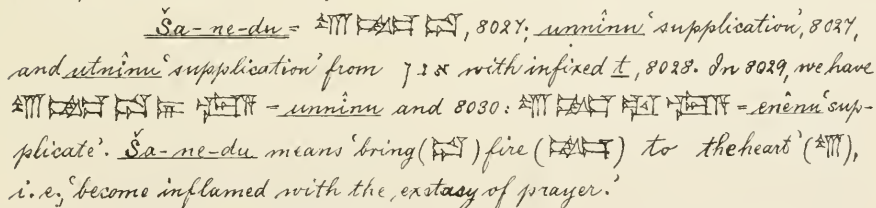 Ša-ne-du = , 8027; unnînu ‘supplication’, 8027,
and utnînu ‘supplication’ from אנן with infixed t, 8028. In 8029, we have
= unnînu and 8030: = enênu ‘sup-
plicate’. Ša-ne-du means ‘bring ( ) fire ( ) to the heart’ ( ),
i.e., ‘become inflamed with the extasy of prayer.’